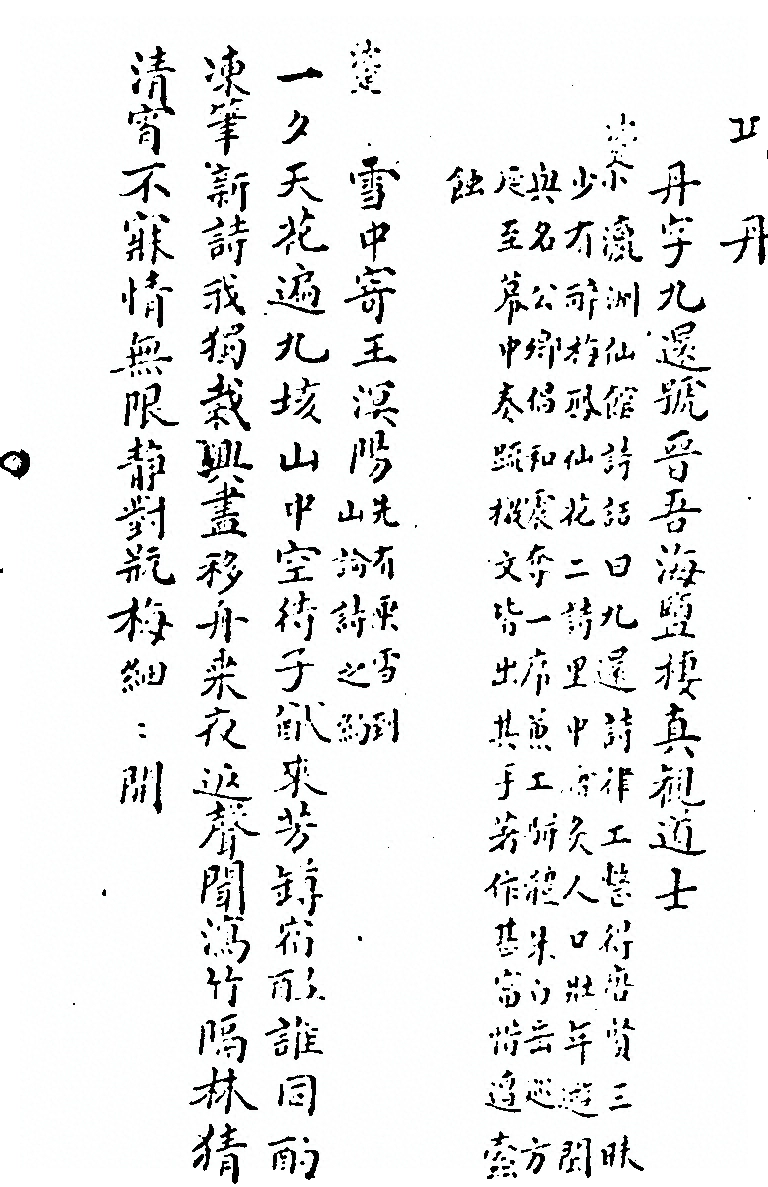 丹
丹字九還號晉吾海鹽棲真觀道士
小瀛洲仙館詩話曰九還詩律工整衍唐賢三昧
少有醉桂
仙花二詩里中膾炙人口壯年遊閩
與名公卿倡和震奪一席兼工駢體朱白岳巡方
延至幕中奏疏檄文皆出其手著作甚富惜遭蠹
蝕
雪中寄王溟陽
先有乘雪到
山論詩之約
一夕天花遍九垓山中空待子猷來芳罇宿釀誰同酌
凍筆新詩我獨裁興盡移舟來夜返聲聞瀉竹隔林猜
清宵不寐情無限靜對瓶梅細二開